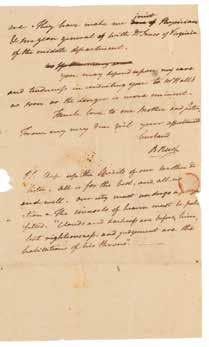 use. They have made me joint Physician
& surgeon general of with Dr Jones of Virginia
of the middle department.
You may depend upon my care
and tenderness in conducting you to
as soon as the danger is more imminent.
Much love to our mother & sister,
From my very dear girl your affectionate
husband
B Rush
PS. Keep up the spirits of our mother &
sister. All is for the best, and all will
end well. Our city must undergo a purga-
tion. The counsels of heaven must be fulfilled.
"Clouds and darkness are before him,
but righteousness and judgement are the
habitations of his throne".